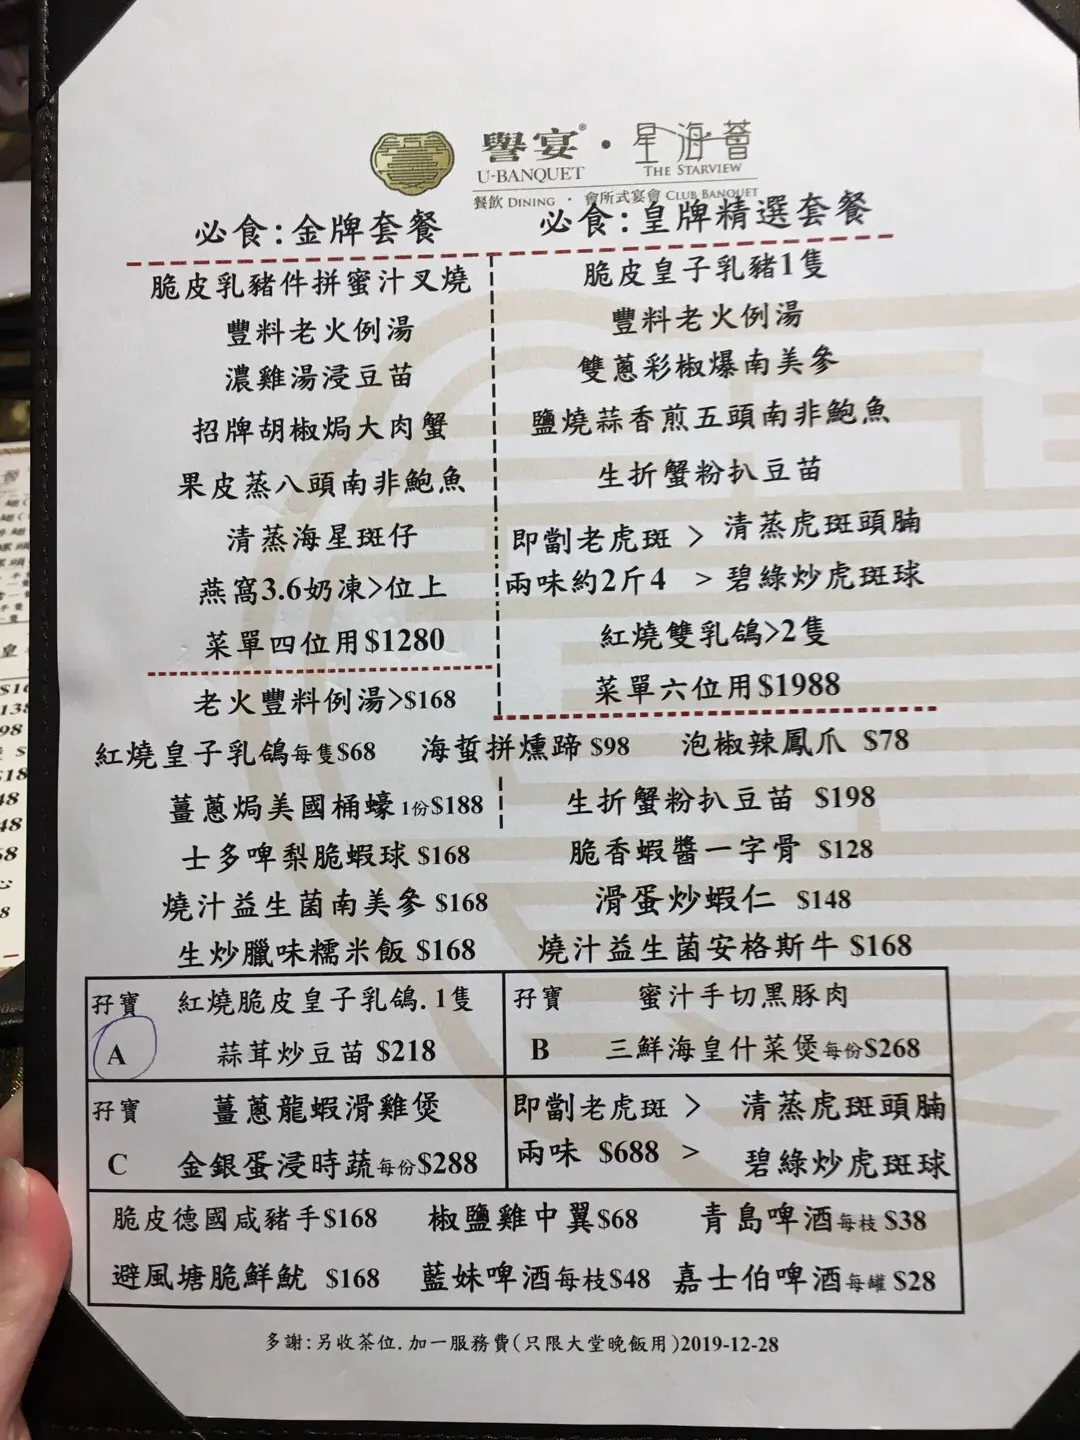 譽宴® · 星海薈
U-BANQUET THE STARVIEW
餐飲 DINING · 會所式宴會 CLUB BANQUET
必食:金牌套餐
脆皮乳豬件拼蜜汁叉燒
豐料老火例湯
濃雞湯浸豆苗
招牌胡椒焗大肉蟹
果皮蒸八頭南非鮑魚
清蒸海星斑仔
燕窩3.6奶凍>位上
菜單四位用$1280
必食:皇牌精選套餐
脆皮皇子乳豬1隻
豐料老火例湯
雙蔥彩椒爆南美參
鹽燒蒜香煎五頭南非鮑魚
生折蟹粉扒豆苗
即劏老虎斑 > 清蒸虎斑頭腩
兩味約2斤4 > 碧綠炒虎斑球
紅燒雙乳鴿>2隻
菜單六位用$1988
老火豐料例湯>$168
紅燒皇子乳鴿每隻$68 海蜇拼燻蹄 $98 泡椒辣鳳爪 $78
薑蔥焗美國桶蠔1份$188 生折蟹粉扒豆苗 $198
士多啤梨脆蝦球 $168 脆香蝦醬一字骨 $128
燒汁益生菌南美參 $168 滑蛋炒蝦仁 $148
生炒臘味糯米飯 $168 燒汁益生菌安格斯牛 $168
孖寶 紅燒脆皮皇子乳鴿.1隻
A 蒜茸炒豆苗 $218
孖寶 蜜汁手切黑豚肉
B 三鮮海皇什菜煲每份$268
孖寶 薑蔥龍蝦滑雞煲
C 金銀蛋浸時蔬每份$288
即劏老虎斑 > 清蒸虎斑頭腩
兩味 $688 > 碧綠炒虎斑球
脆皮德國咸豬手$168 椒鹽雞中翼$68 青島啤酒每枝 $38
避風塘脆鮮魷 $168 藍妹啤酒每枝$48 嘉士伯啤酒每罐 $28
多謝:另收茶位.加一服務費(只限大堂晚飯用)2019-12-28